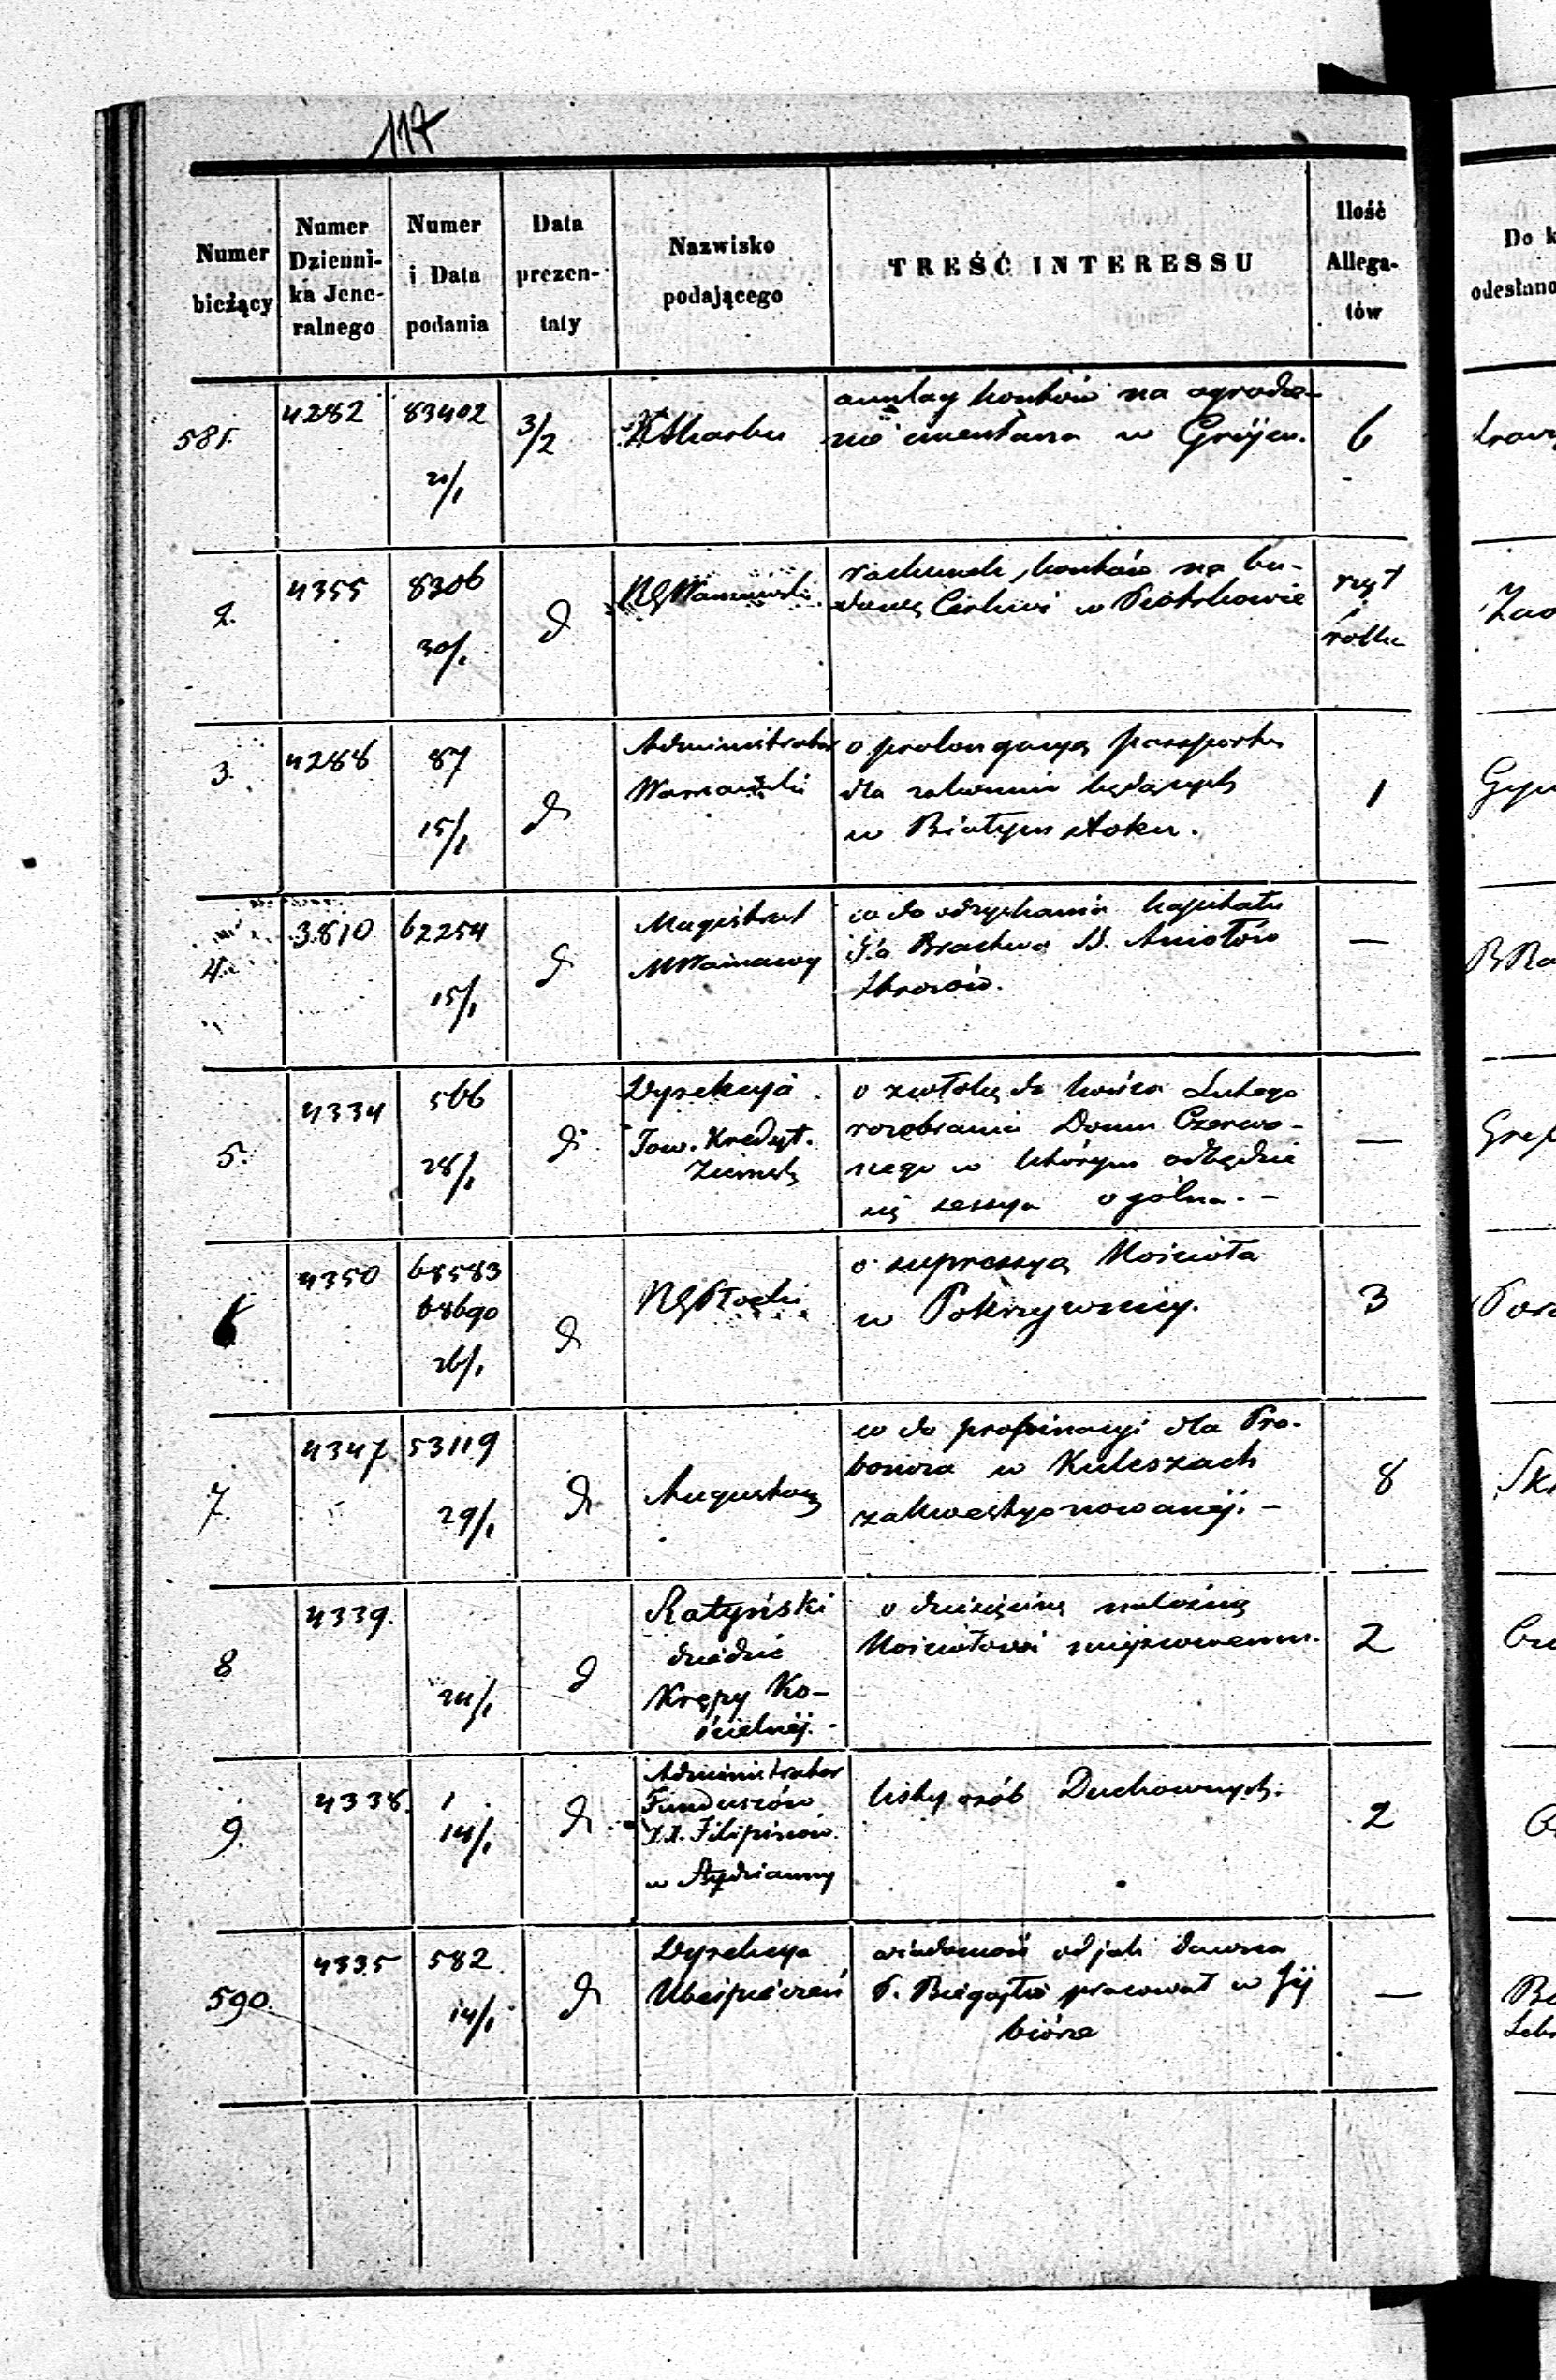 117
Numer bieżący
Numer Dzienni- ka Jene- ralnego
Numer i Data podania
Data prezen- taty
Nazwisko podającego
TREŚĆ INTERESSU
Ilość Allega- tów
Do k
odesłano
581.
4282
83402
21/1
3/2
KSkarbu
anszlag kosztów na ogrodze-
nie cmentarza w Grójcu.
6
2.
4355
8306
30/1
d
RGWarszawski
rachunek, kosztów na bu-
dowę Cerkwi w Piotrkowie
szyt
i
rolka
Zao
3.
4288
87
15/1
do
Administrator
Warszawski
o prolongacyą passportu
dla zakonnic będących
w Białym stoku.
1
4.
3810
62254
15/1
do
Magistrat
MWarszawy
co do odzyskania kapitału
dla Bractwa SS. Aniołów
Stróżów.
—
5.
4334
566
28/1
do
Dyrekcyja
Tow. Kredyt.
Ziemsk
o zwłokę do końca Lutego
rozebrania Domu Czerwo-
nego w którym odbędzie
się sessya ogólna. -
—
6
4350
68583
68690
26/1
do
RGPłocki
o supressyą Kościoła
w Pokrzywnicy.
3
7.
4347
53119
29/1
do
Augustow
co do propinacyi dla Pro-
boszcza w Kuleszach
zakwestyonowanéj. -
8
8
4339.
24/1
d
Ratyński
dziedzic
Krępy Ko-
ścielnéj. -
o dziesięcinę należną
Kościołowi miejscowemu.
2
9.
4338.
1
14/1
do
Administrator
Funduszów
XX. Filipinów
w Studzianny
listy osób Duchownych.
2
590.
4335
582
14/1
do
Dyrekcya
Ubezpieczeń
wiadomość od jak dawna
P. Biegański pracował w Jéj
biórze
—